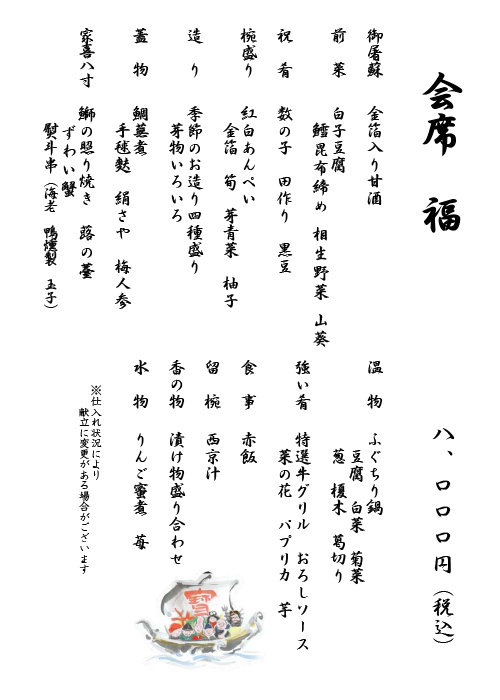 会席 福
八、〇〇〇円(税込)
御屠蘇 金箔入り甘酒
前菜 白子豆腐
鱈昆布締め 相生野菜 山葵
祝肴 数の子 田作り 黒豆
椀盛り 紅白あんぺい
金箔 筍 芽青菜 柚子
造り 季節のお造り四種盛り
芽物いろいろ
蓋物 鯛蕪煮
手毬麩 絹さや 梅人参
家喜八寸 鰤の照り焼き 蕗の薹
ずわい蟹
熨斗串(海老 鴨燻製 玉子)
温物 ふぐちり鍋
豆腐 白菜 菊菜
葱 榎木 葛切り
強い肴 特選牛グリル おろしソース
菜の花 パプリカ 芋
食事 赤飯
留椀 西京汁
香の物 漬け物盛り合わせ
水物 りんご蜜煮 苺
※仕入れ状況により
献立に変更がある場合がございます
寳